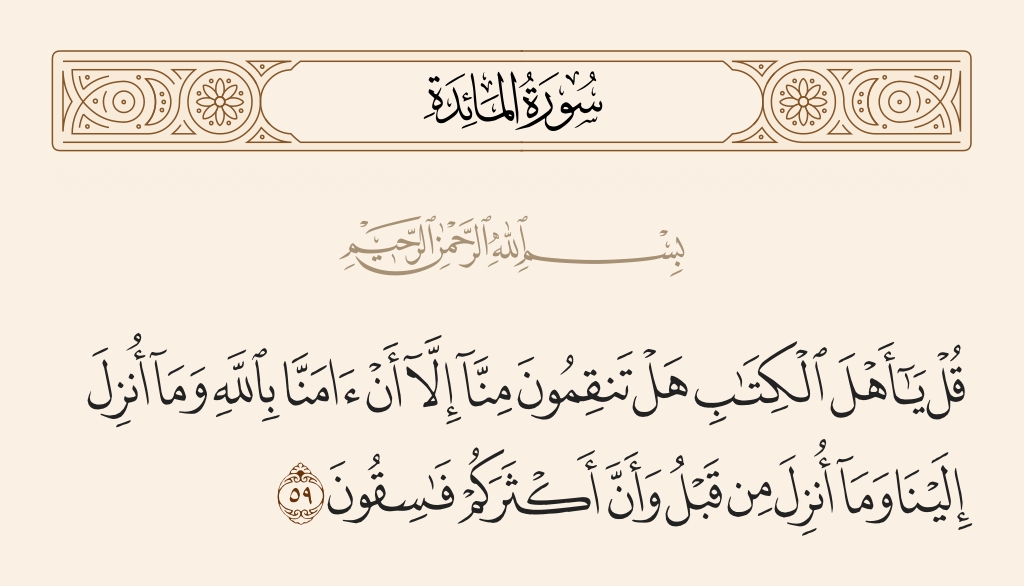 سُورَةُ المَائِدَةِ
بِسْمِ ٱللَّهِ ٱلرَّحْمَٰنِ ٱلرَّحِيمِ
قُلْ يَـٰٓأَهْلَ ٱلْكِتَـٰبِ هَلْ تَنقِمُونَ مِنَّآ إِلَّآ أَنْ ءَامَنَّا بِٱللَّهِ وَمَآ أُنزِلَ
إِلَيْنَا وَمَآ أُنزِلَ مِن قَبْلُ وَأَنَّ أَكْثَرَكُمْ فَـٰسِقُونَ ٥٩